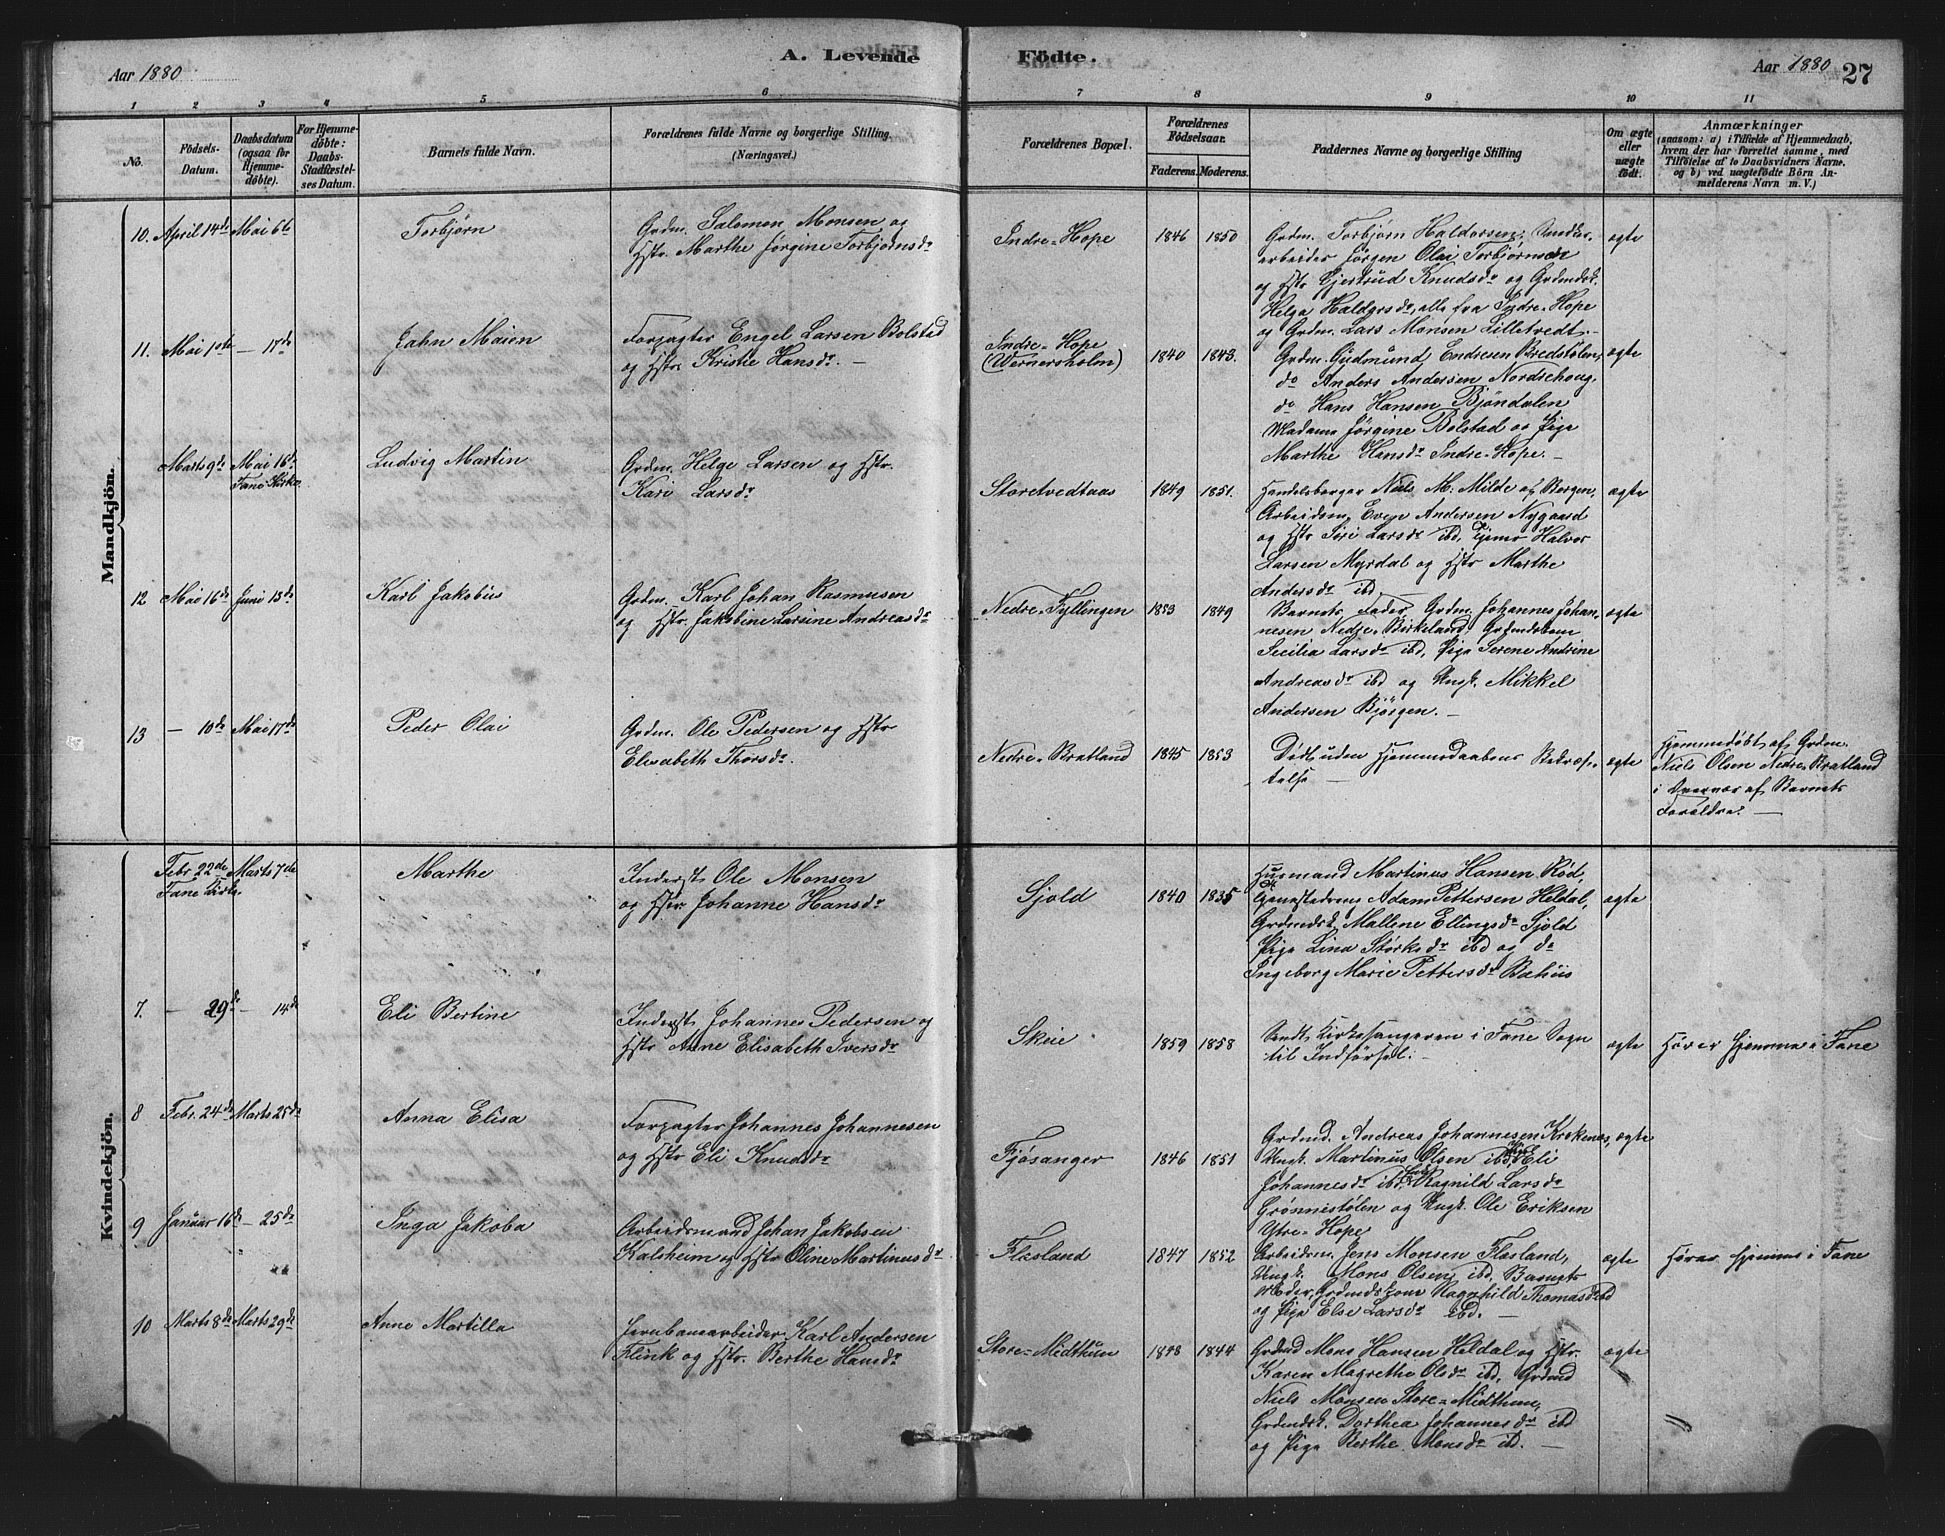 Aar 1880
A. Levende
Födte.
Aar 1880
27
1 2 3 4 5 6 7 8 9 10 11
No.
Födsels-
Datum.
Daabsdatum
(ogsaa for
Hjemme-
döbte).
For Hjemme-
döbte:
Daabs-
Stadfæstel-
ses Datum.
Barnets fulde Navn.
Forældrenes fulde Navne og borgerlige Stilling.
(Næringsvei.)
Forældrenes Bopæl.
Forældrenes
Födselsaar.
Faderens.
Moderens.
Faddernes Navne og borgerlige Stilling
Om ægte
eller
uægte
födt.
Anmærkninger
(saasom: a) i Tilfælde af Hjemmedaab,
hvem der har forrettet samme, med
Tilföielse af to Daabsvidners Navne.
og b) ved uægtefödte Börn An-
melderens Navn m. V.)
Mandkjön.
10. April 14de Mai 6te
Torbjørn
Grdm. Salomon Monsen og
Hstr. Marthe Jørgine Torbjørnsdr
Indre-Hope
1846 1850
Grdm. Torbjørn Haldorsen,
arbeider Jørgen Olai Torbjørnsen
og Hstr Gjertrud Knudsdr og Grdmdsk.
Helga Haldorsdr, alle fra Indre-Hope
og Grdm. Lars Monsen Lilletvedt.-
ægte
11. Mai 1ste - 17de
Jahn Maien
Forpagter Engel Larsen Bolstad
og Hstr. Kristie Hansdr. -
Indre-Hope
(Wernersholm)
1840 1843.
Grdm. Gudmund Endresen Bredstølen,
do Anders Andersen Nordrehoug,
do Hans Hansen Bjøndalen
Madame Jørgine Bolstad og Pige
Marthe Hansdr Indre-Hope. -
ægte
Marts 9de Mai 16de
Fane Kirke
Ludvig Martin
Grdm. Helge Larsen og Hstr.
Kari Larsdr
Storetvedtaas
1849 1851.
Handelsborger Niels M: Milde af Bergen,
Arbeidsm. Even Andersen Nygaard
og Hstr Siri Larsdr ibd, Halvor
Larsen Myrdal og Hstr Marthe
Andersdr ibd -
ægte
12 Mai 16de Juni 13de
Karl Jakobus
Grdm. Karl Johan Rasmusen
og Hstr. Jakobine Larsine Andreasdr
Nedre-Fyllingen
1853 1849
Barnets Fader, Grdm. Johannes Johan-
nesen Nedre-Birkeland, Grdmdskone
Secilia Larsdr ibd, Pige Serene Andrine
Andreasdr ibd og Ungk. Mikkel
Andersen Bjørgen. -
ægte
13 - 10de Mai 17de
Peder Olai
Grdm. Ole Pedersen og Hstr
Elisabeth Thorsdr.
Nedre-Bratland
1845 1853
Død uden Hjemmedaabens Bekræf-
telse -
ægte
Hjemmedøbt af Grdm.
Niels Olsen Nedre-Bratland
i Overvær af Barnets
Forældre. -
Kvindekjön.
Febr 22de Marts 7de
Fane Kirke
Marthe
Inderst Ole Monsen
og Hstr Johanne Hansdr
Sjold
1840 1835
Husmand Martinus Hansen Rød,
Adam Pettersen Heldal,
Grdmdsk. Mallene Ellingsdr Sjold
Pige Lina Størksdr ibd og do
Ingeborg Marie Pettersdr
ægte
7. - 29de - 14de
Eli Bertine
Inderst Johannes Pedersen og
Hstr Anne Elisabeth Iversdr
Skeie
1859 1858
Sendt Kirkesangeren i Fane Sogn
til Indførsel. -
ægte
Hører hjemme i Fane
8 Febr. 24de Marts 25de
Anna Elisa
Forpagter Johannes Johannesen
og Hstr Eli Knudsdr
Fjøsanger
1846 1851
Grdmd. Andreas Johannesen Krokenes,
Ungk. Martinus Olsen ibd, Eli
Johannesdr ibd, Ragnild Larsdr
Grønnestølen og Ungk. Ole Eriksen
Ytre-Hope
ægte
9 Januar 16de - 25de
Inga Jakoba
Arbeidsmand Johan Jakobsen
Kalsheim og Hstr Oline Martinusdr
Flæsland
1847 1852
Arbeidsm. Jens Monsen Flæsland,
Ungk. Mons Olsen ibd, Barnets
Moder, Grdmdskone Ragnhild Thomasdr ibd
og Pige Else Larsdr ibd. -
ægte
Hører hjemme i Fane
10 Marts 8de Marts 29de
Anne Martilla
Jernbanearbeider Karl Andersen
Flink og Hstr. Berthe Hansdr
Store-Midthun
1848 1844
Grdmd Mons Hansen Heldal og Hstr.
Karen Magrethe Olsdr ibd, Grdmd
Niels Monsen Store-Midthun,
Grdmdsk. Dorthea Johannesdr ibd
og Pige Berthe Monsdr ibd. -
ægte